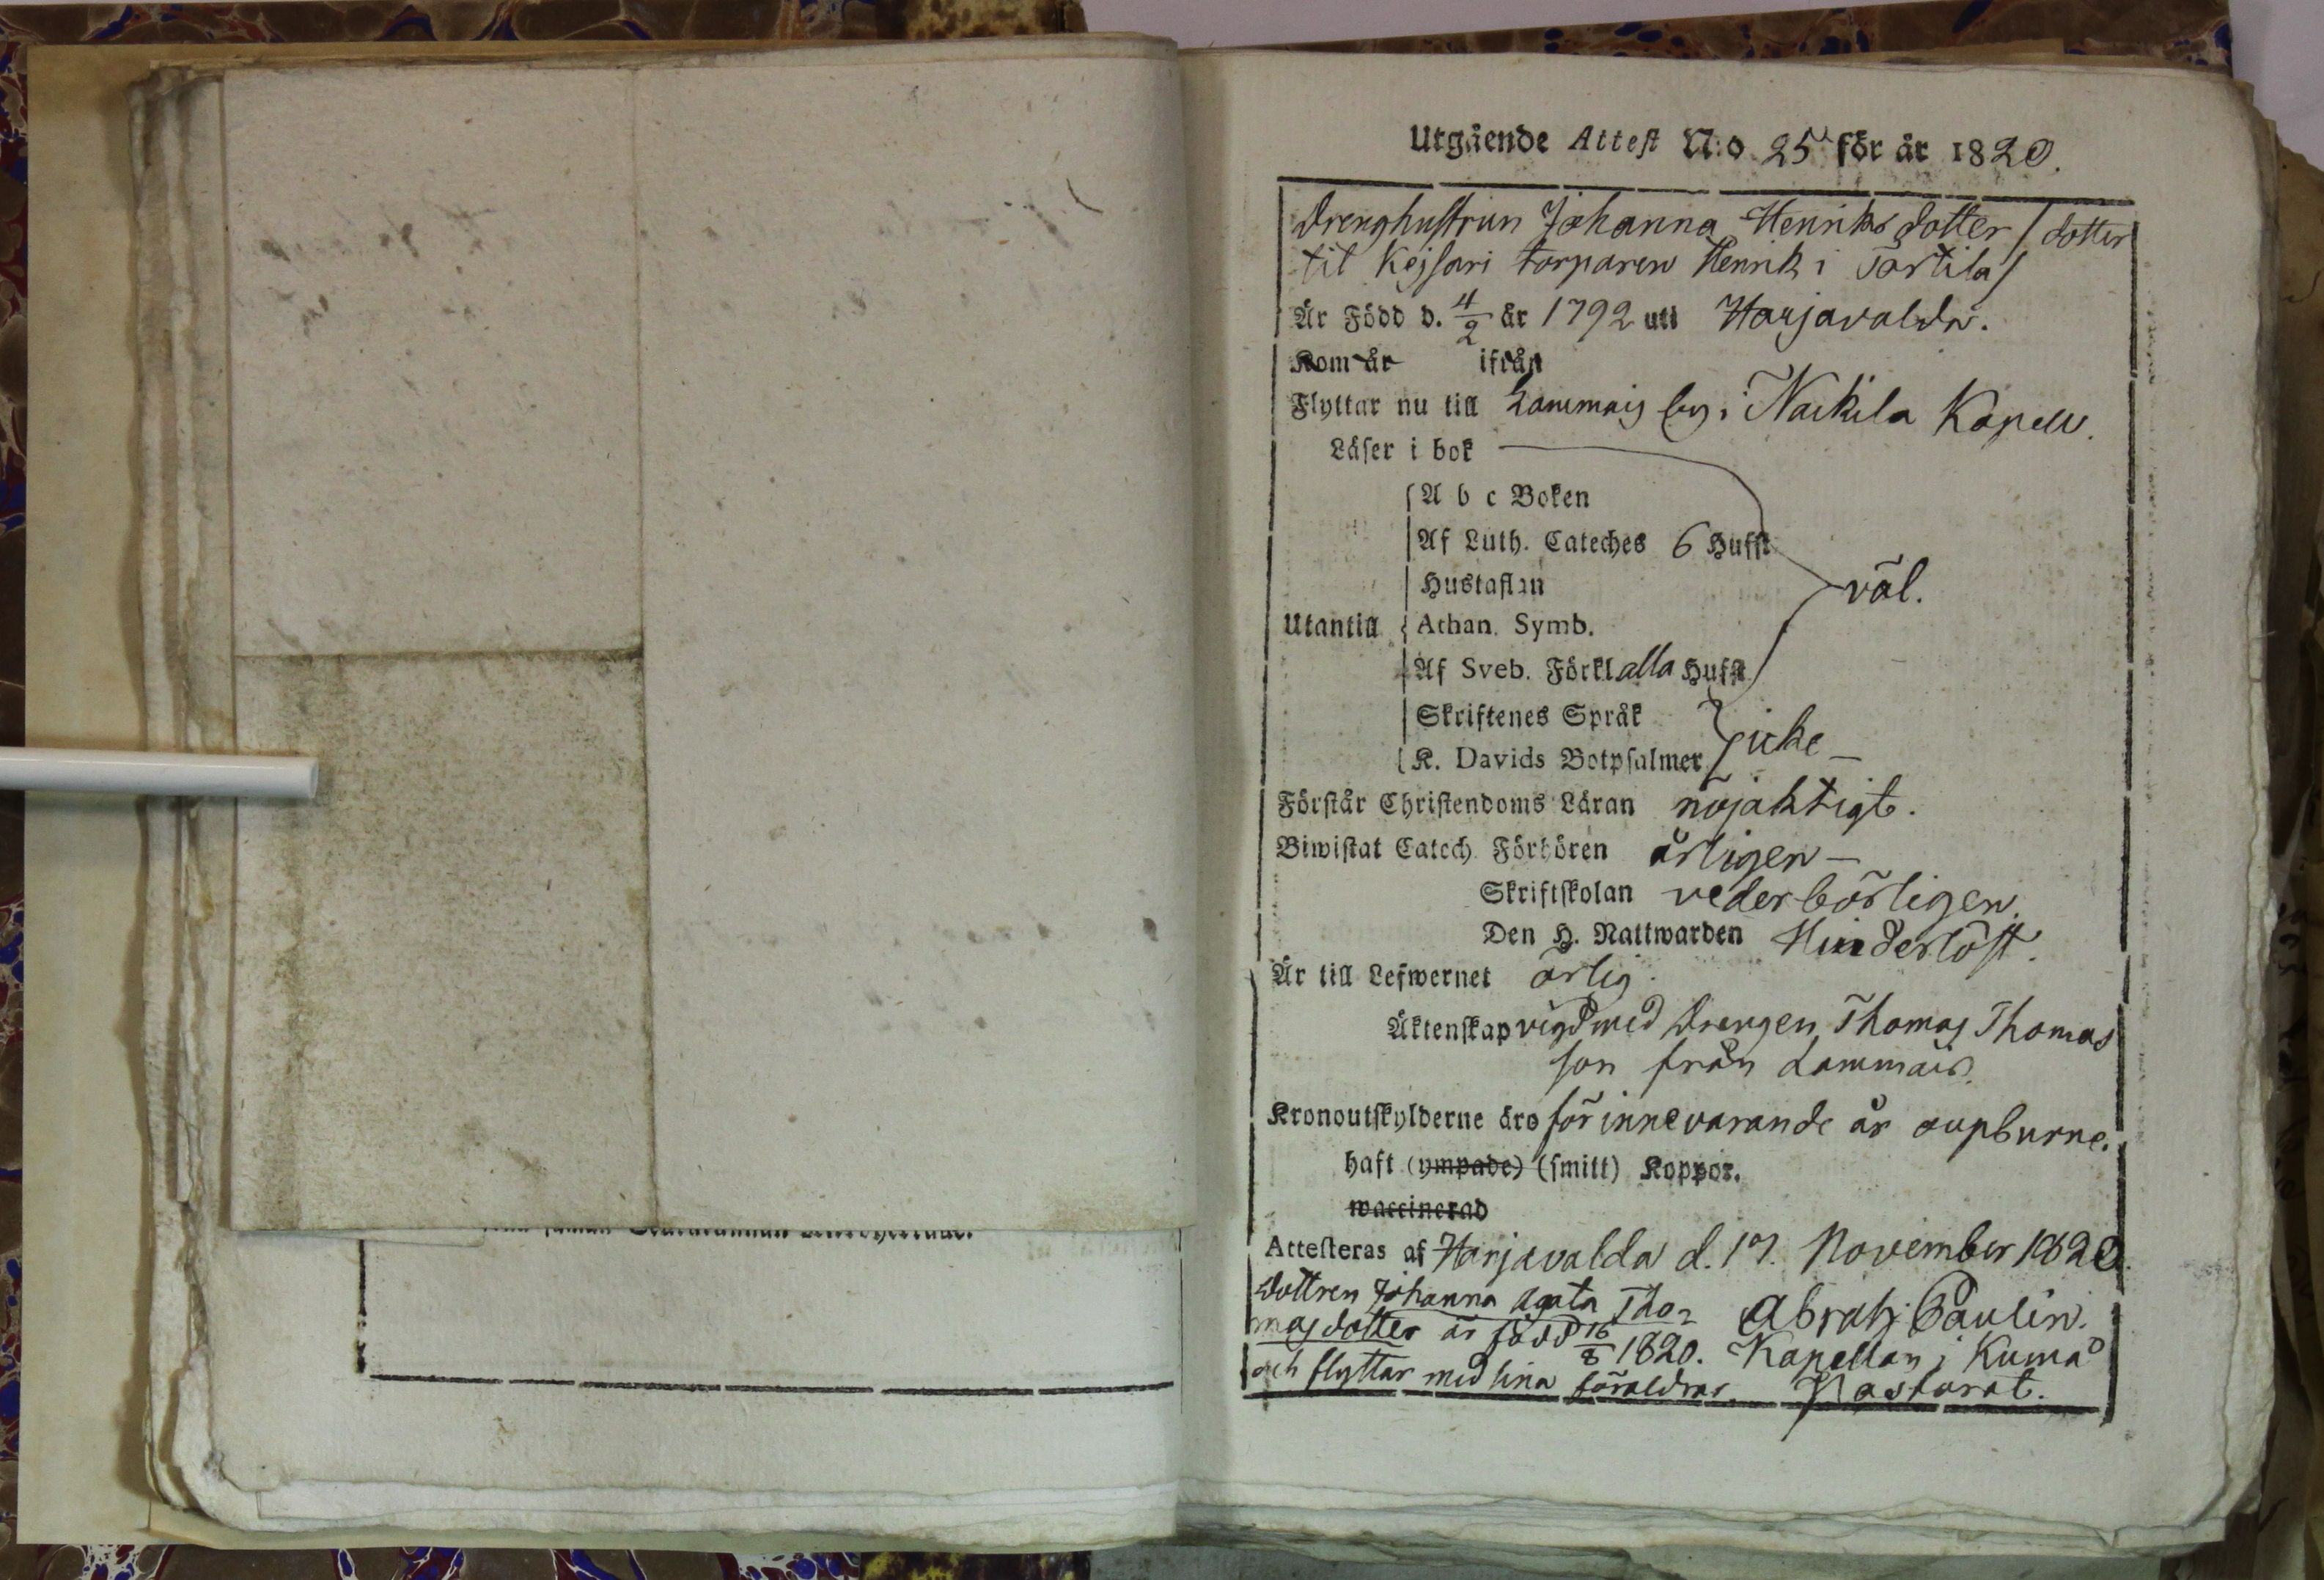 Utgående Attest N:o 25 för år 1820.
Drenghustrun Johanna Henriksdotter / dotter
til Kejsari torparen Henrik i Torttila /
Är Född d. 4/2 år 1792 uti Harjavalda.
Kom år ifrån
Flyttar nu till Lammais by i Nackila Kapell.
Läser i bok
A b c Boken
Af Luth. Cateches 6 Hufst
Hustaflan
väl.
Utantill Athan. Symb.
Af Sveb. Förkl alla Hufst.
Skriftenes Språk
icke
K. Davids Botpsalmer
Förstår Christendoms Läran nöjaktigt.
Biwistat Catech. Förhören årligen
Skriftskolan vederbörligen.
Den H. Nattwarden Hinderlöst.
Är till Lefwernet ärlig.
Äktenskap vigd med Drengen Thomas Thomas
son från Lammais.
Kronoutskylderne äro för innevarande år oupburne.
haft (ympade) (smitt) Koppor.
waccinerad
Attesteras af Harjavalda d. 17. November 1820.
Dottren Johanna Agata Tho=
masdotter är född 16/8 1820.
och flyttar med sina föräldrar.
Abrah: Paulin.
Kapellan i Kumo
Pastorat.